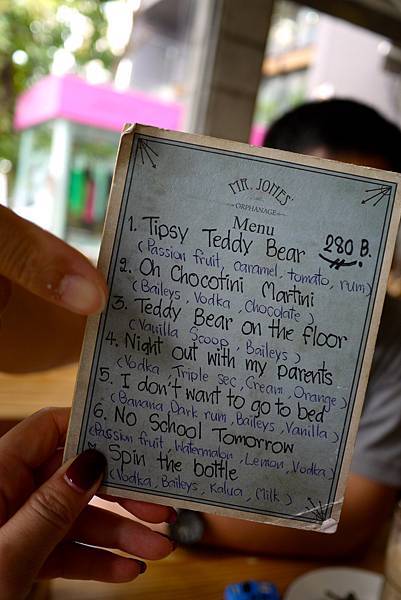 MR. JONES
ORPHANAGE
Menu
280 B.
1. Tipsy Teddy Bear
(Passion fruit, caramel, tomato, rum)
2. Oh Chocotini Martini
(Baileys, Vodka, Chocolate)
3. Teddy Bear on the floor
(Vanilla Scoop, Baileys)
4. Night out with my parents
(Vodka, Triple sec, Cream, Orange)
5. I don't want to go to bed
(Banana, Dark rum, Baileys, Vanilla)
6. No School Tomorrow
(Passion fruit, Watermelon, Lemon, Vodka)
Spin the bottle
(Vodka, Baileys, Kalua, Milk)